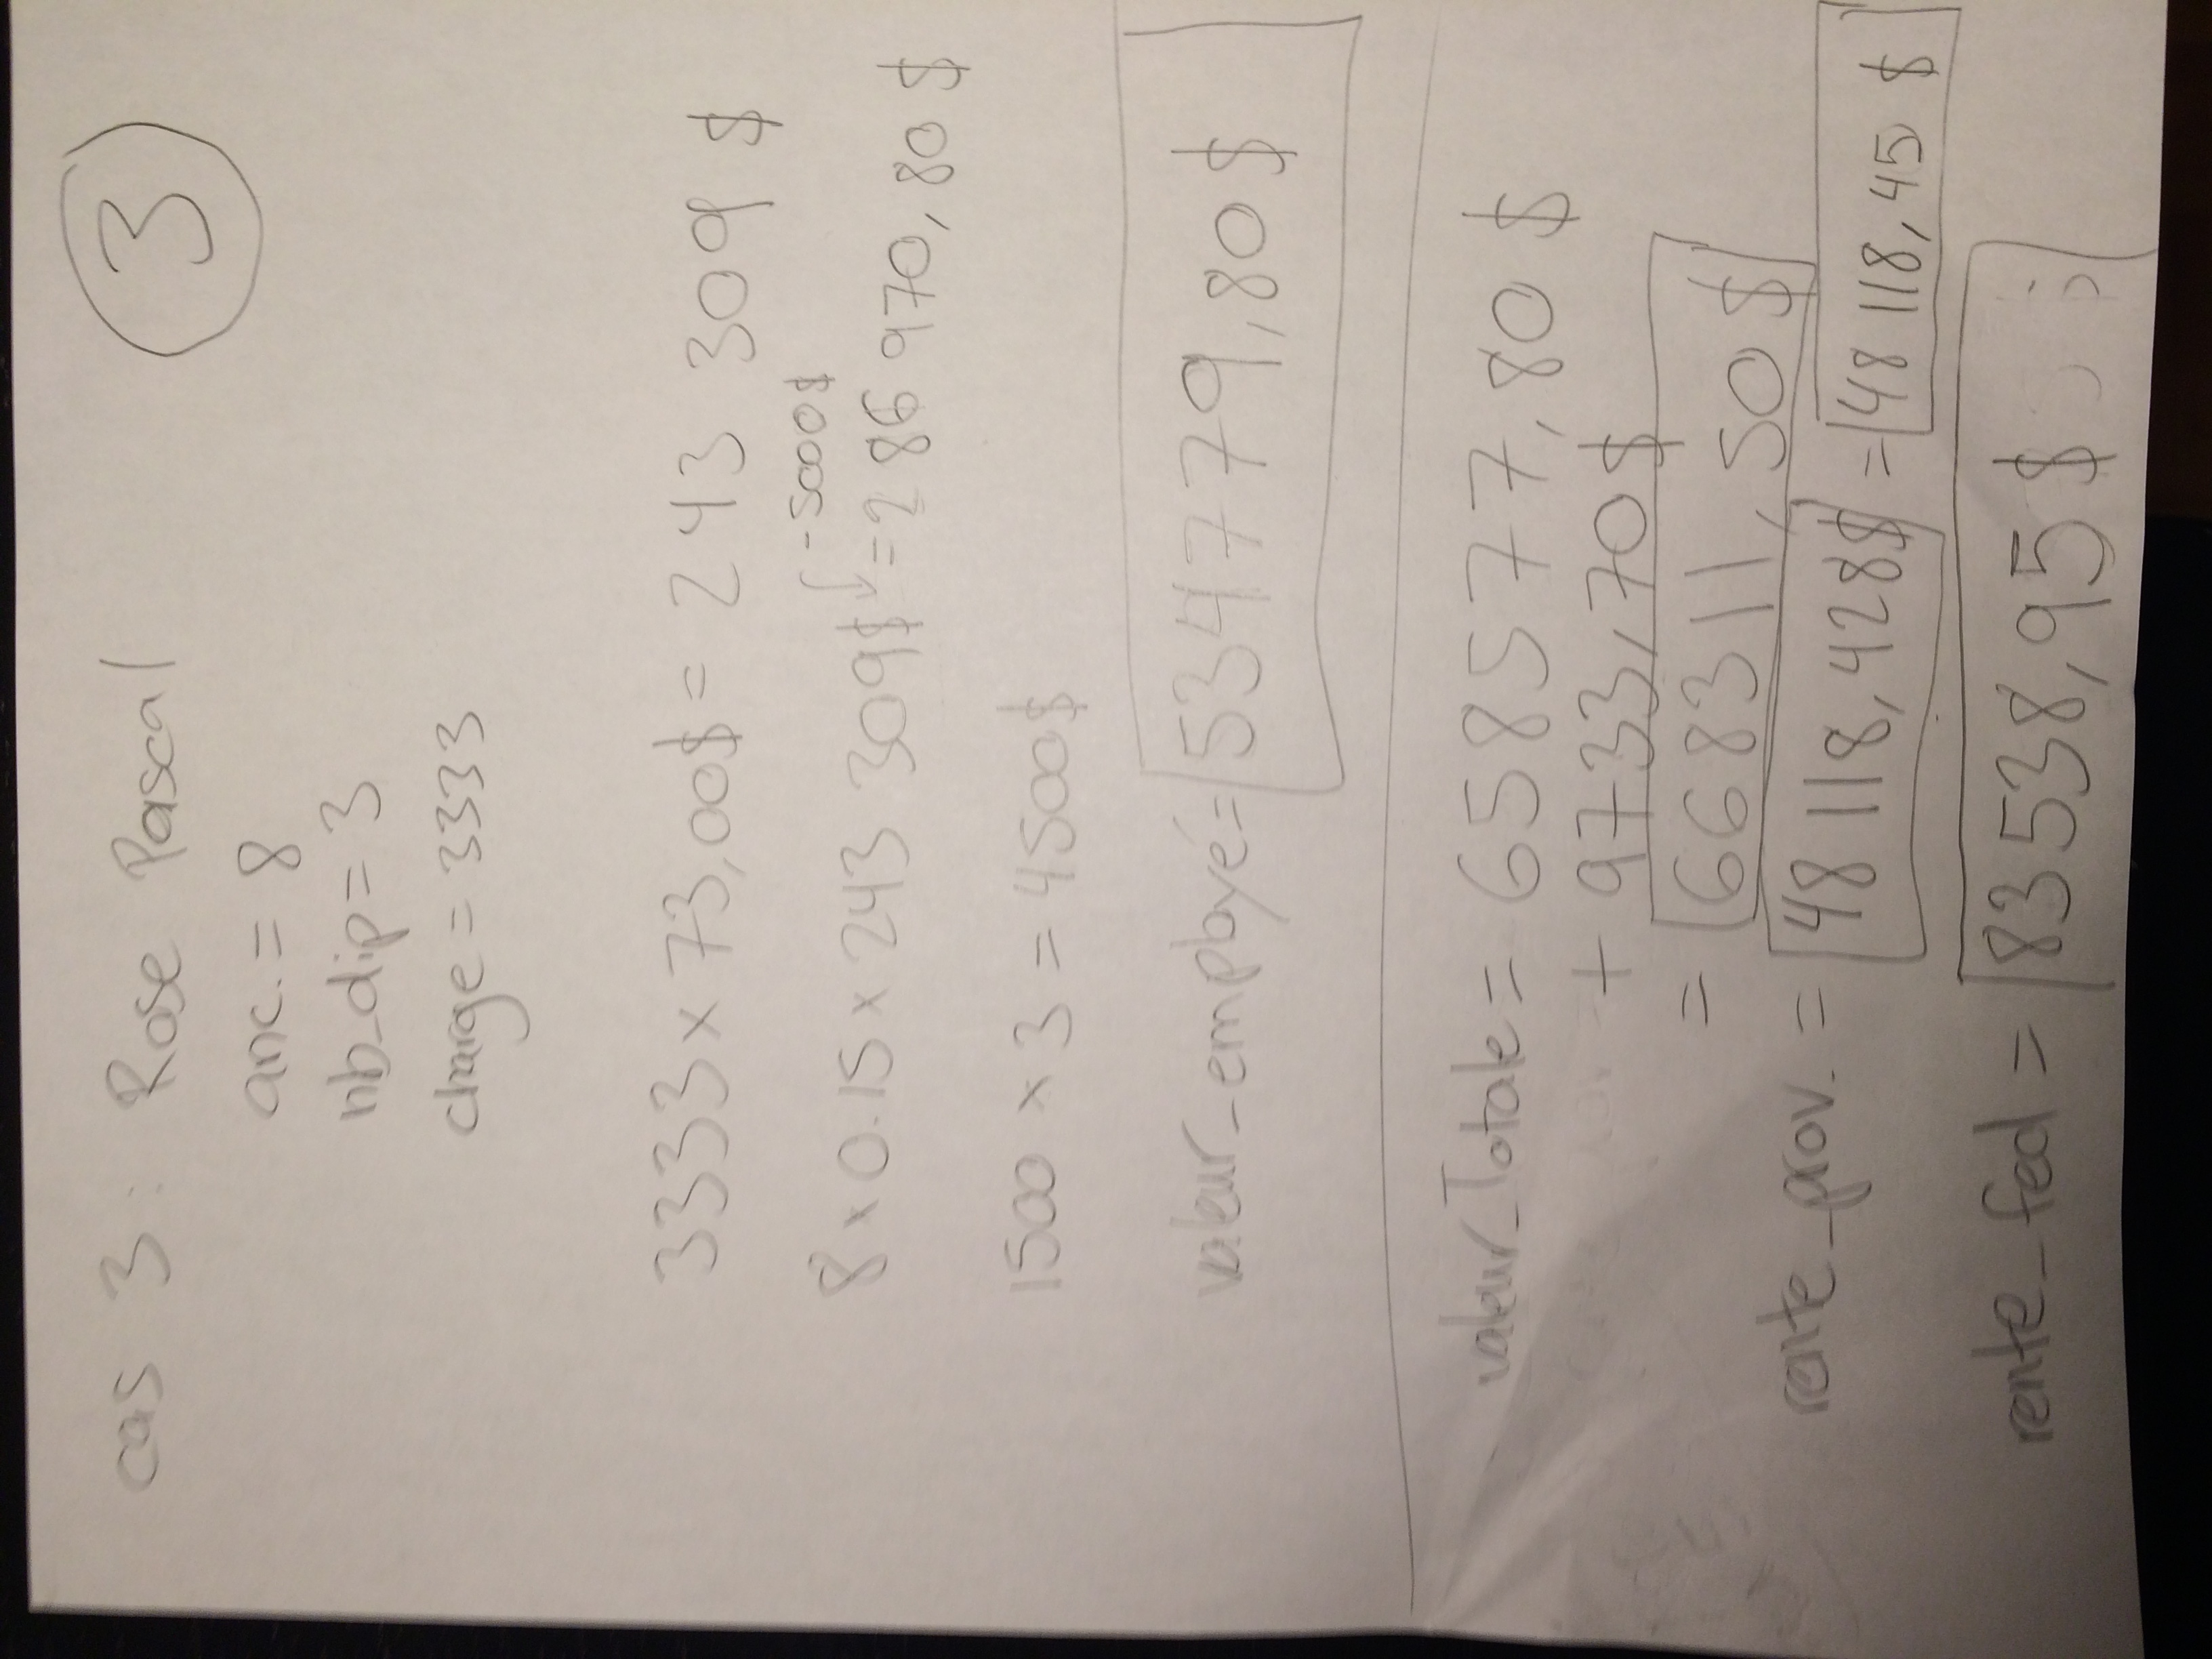 cas 3: Rose Pascal
3
anc. = 8
nb_dip = 3
charge = 3333
3333 x 73,00$ = 243 309 $
-5000$
8 x 0.15 x 243 309$ = 286 970,80 $
1500 x 3 = 4500$
valeur_employé = 534779,80 $
valeur_Totale = 658577,80 $
+ 9733,70$
= 668311,50$
rente_prov. = 48 118,428$ = 48 118,45 $
rente_fed = 83538,95 $